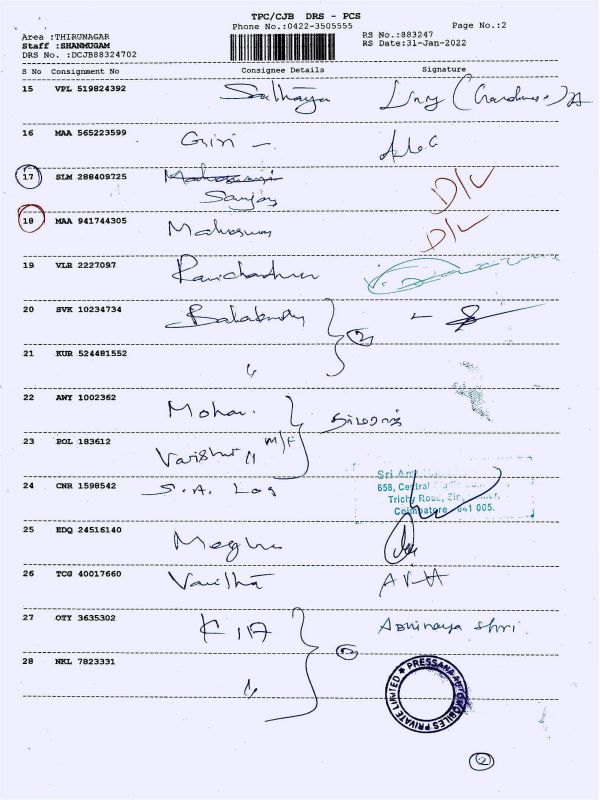 TPC/CJB DRS - PCS
Phone No.:0422-3505555
Page No.:2
Area :THIRUNAGAR
Staff :SHANMUGAM
DRS No. :DCJB88324702
RS No.:883247
RS Date:31-Jan-2022
S No Consignment No Consignee Details Signature
15 VPL 519824392 Sathaya
16 MAA 565223599 Giri -
17 SLM 288409725 D/L
Sanjay
18 MAA 941744305 D/L
19 VLR 2227097
20 SVK 10234734
2
21 KUR 524481552 "
22 AWY 1002362 Mohan.
23 POL 183612 M/F
24 CNR 1598542 S.A. Log
Sri
658, Central
Trichy Road,
Coimbatore 641 005.
25 EDQ 24516140 Meghu
26 TCG 40017660
27 OTY 3635302 KIA Abhinaya Shri.
2
28 NKL 7823331 "
PRESSANA AUTOMOBILES PRIVATE LIMITED
2